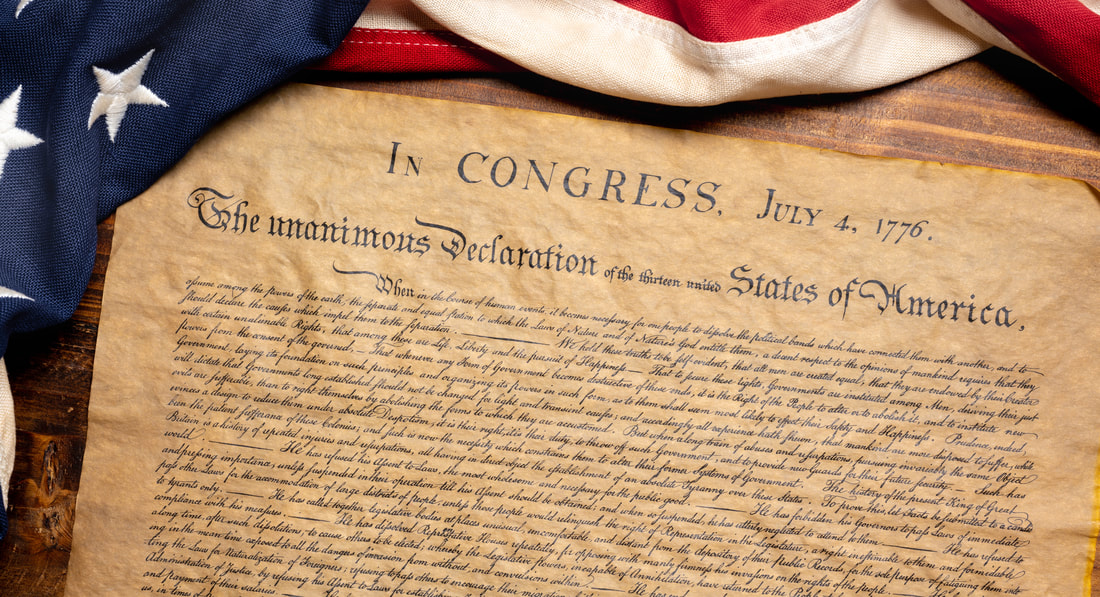 In CONGRESS, July 4, 1776.
The unanimous Declaration of the thirteen united States of America,
When in the Course of human events, it becomes necessary for one people to dissolve the political bands which have connected them with another, and to
assume among the powers of the earth, the separate and equal station to which the Laws of Nature and of Nature's God entitle them, a decent respect to the opinions of mankind requires that they
should declare the causes which impel them to the separation. We hold these truths to be self-evident, that all men are created equal, that they are endowed by their Creator
with certain unalienable Rights, that among these are Life, Liberty and the pursuit of Happiness.— That to secure these rights, Governments are instituted among Men, deriving their just
powers from the consent of the governed,— That whenever any Form of Government becomes destructive of these ends, it is the Right of the People to alter or to abolish it, and to institute new
Government, laying its foundation on such principles and organizing its powers in such form, as to them shall seem most likely to effect their Safety and Happiness. Prudence, indeed,
will dictate that Governments long established should not be changed for light and transient causes; and accordingly all experience hath shewn, that mankind are more disposed to suffer, while
evils are sufferable, than to right themselves by abolishing the forms to which they are accustomed. But when a long train of abuses and usurpations, pursuing invariably the same Object
evinces a design to reduce them under absolute Despotism, it is their right, it is their duty, to throw off such Government, and to provide new Guards for their future security.— Such has
been the patient sufferance of these Colonies; and such is now the necessity which constrains them to alter their former Systems of Government. The history of the present King of Great
Britain is a history of repeated injuries and usurpations, all having in direct object the establishment of an absolute Tyranny over these States. To prove this, let Facts be submitted to a candid
world. He has refused his Assent to Laws, the most wholesome and necessary for the public good. He has forbidden his Governors to pass Laws of immediate
and pressing importance, unless suspended in their operation till his Assent should be obtained; and when so suspended, he has utterly neglected to attend to them. He has refused to
pass other Laws for the accommodation of large districts of people, unless those people would relinquish the right of Representation in the Legislature, a right inestimable to them and formidable
to tyrants only. He has called together legislative bodies at places unusual, uncomfortable, and distant from the depository of their public Records, for the sole purpose of fatiguing them into
compliance with his measures. He has dissolved Representative Houses repeatedly, for opposing with manly firmness his invasions on the rights of the people.
long time, after such dissolutions, to cause others to be elected; whereby the Legislative powers, incapable of Annihilation, have returned to the People
ing in the mean time exposed to all the dangers of invasion from without, and convulsions within.
ting the Laws for Naturalization of Foreigners; refusing to pass others to encourage their migration
Administration of Justice, by refusing his Assent to Laws for
and payment of their salaries.
us, in times of